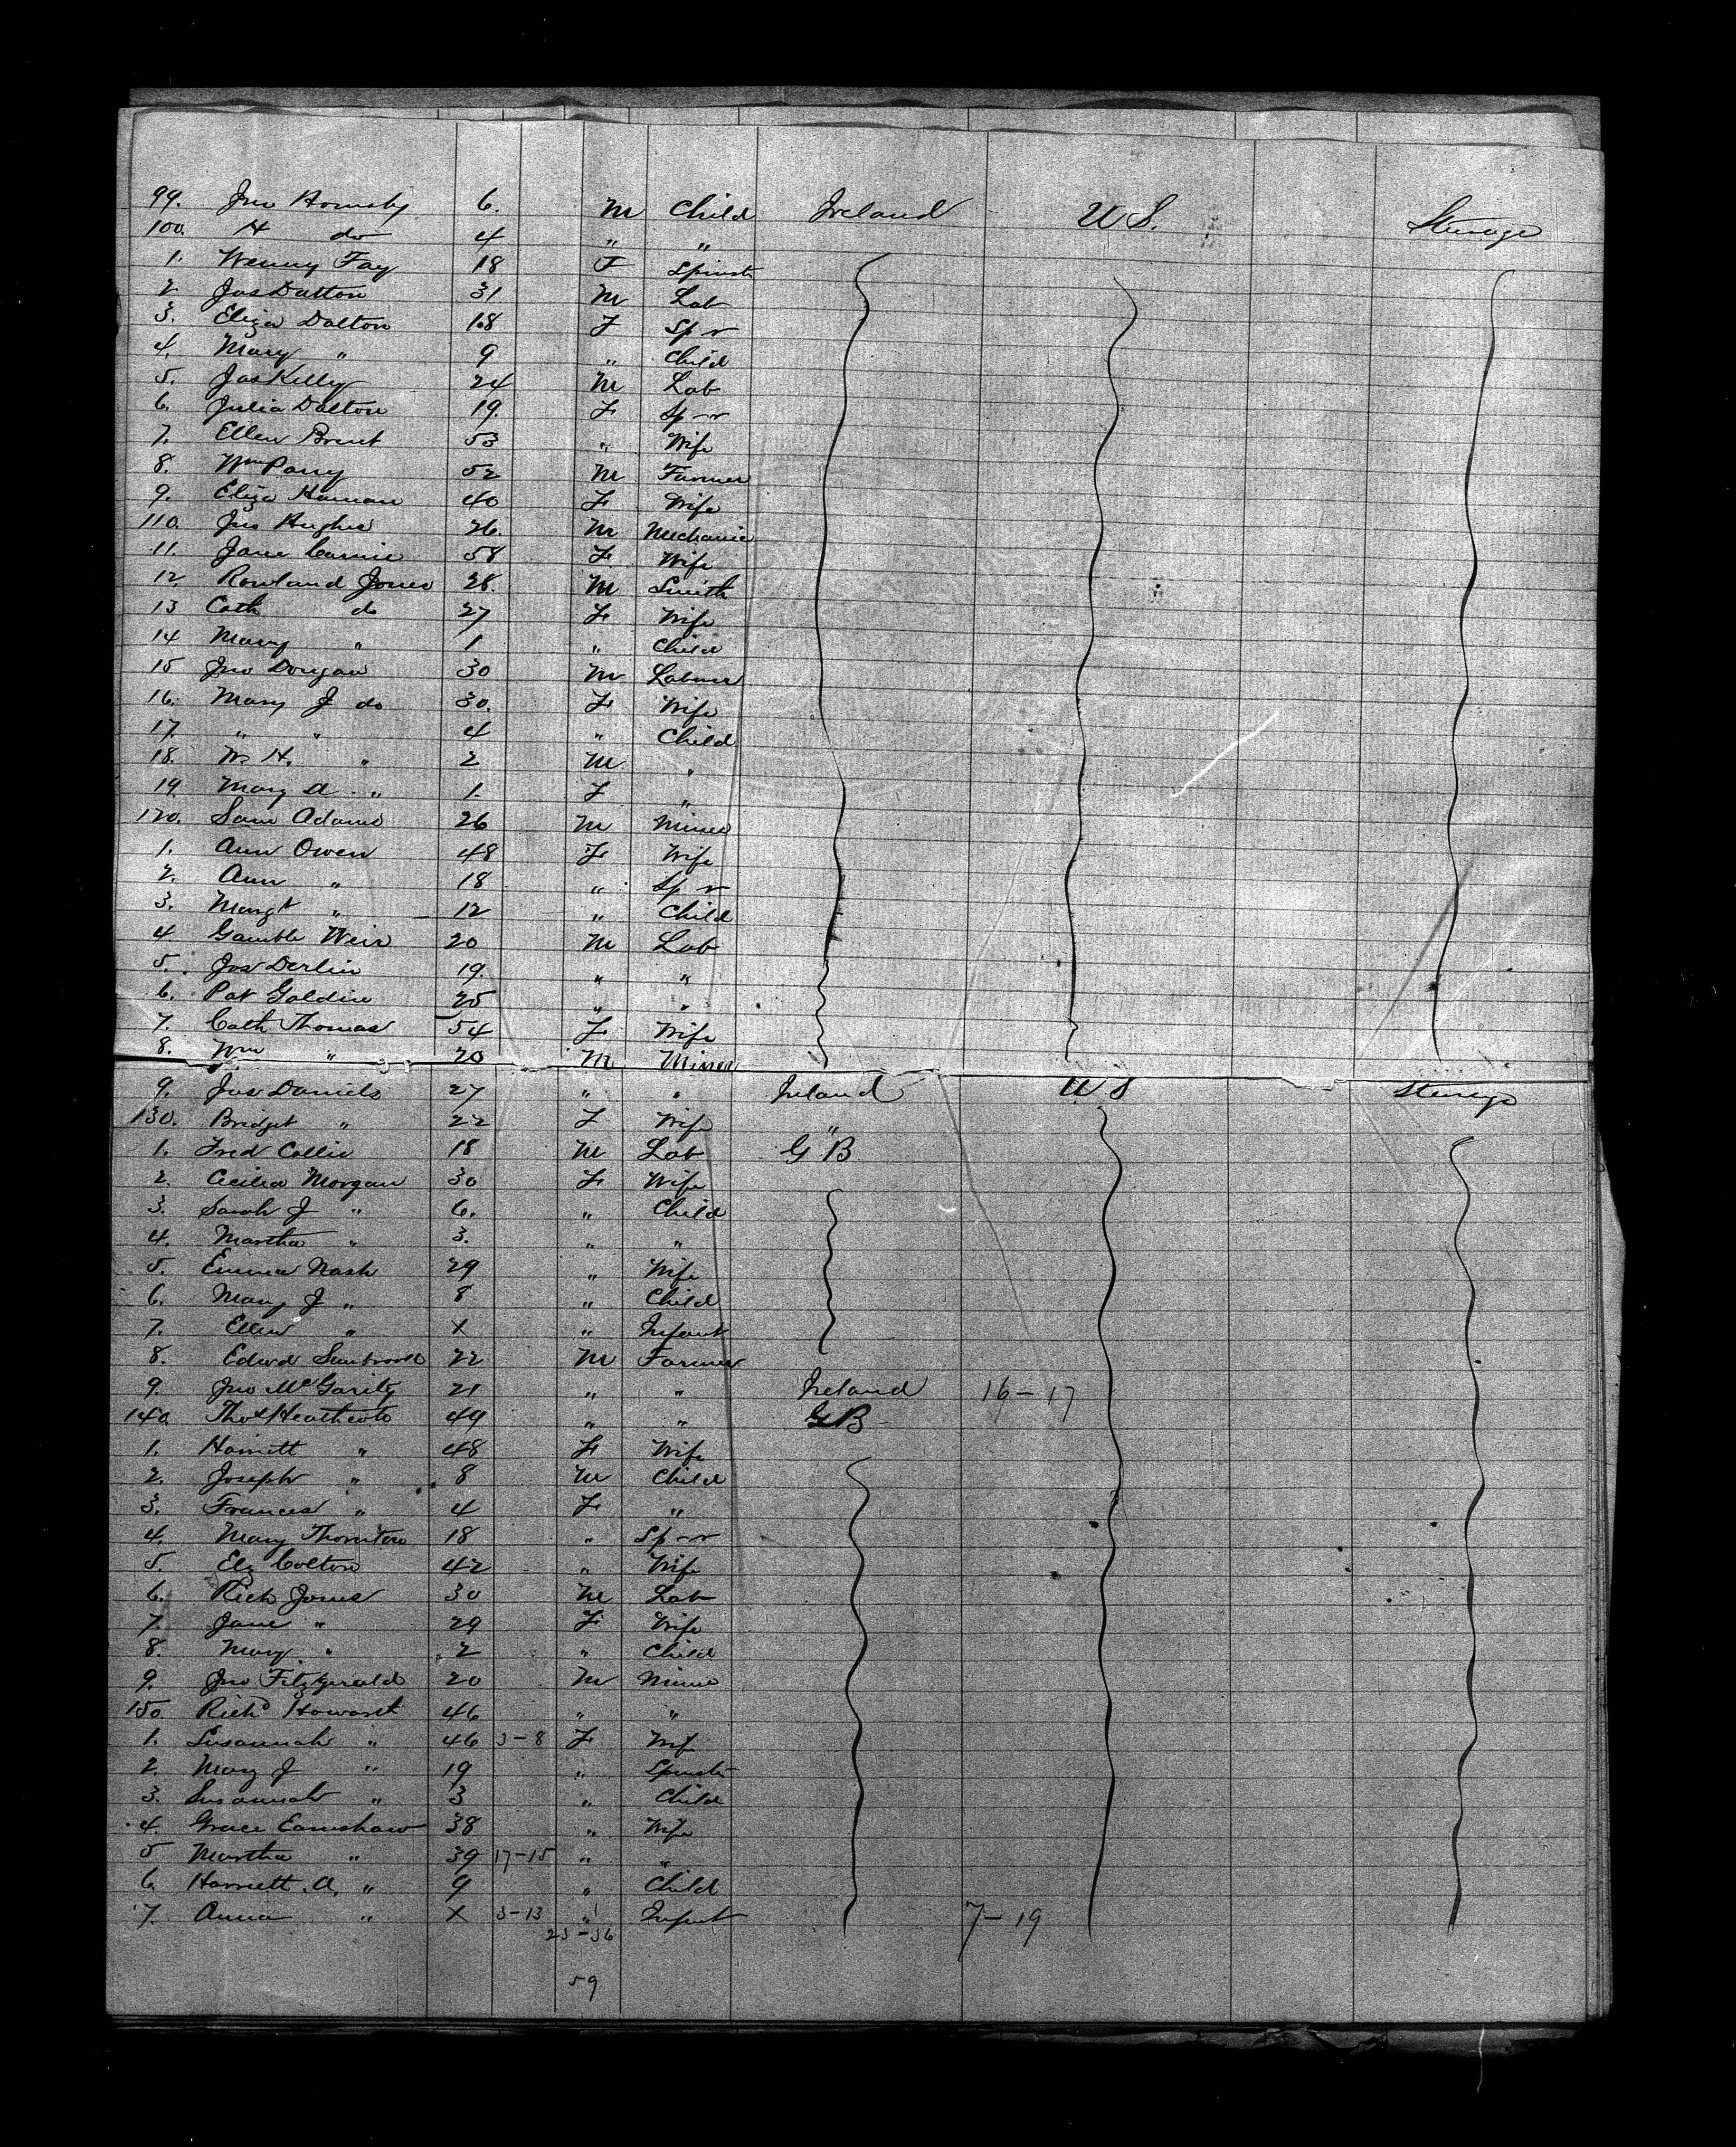 99. Jno Hornsby 6. M Child Ireland U S. Steerage
100. H do 4 " "
1. Wenny Fay 18 F Spinstr
2. Jas Dalton 31 M Lab
3. Eliza Dalton 18 F Sp-r
4. Mary " 9 " Child
5. Jas Kelly 24 M Lab
6. Julia Dalton 19. F Sp-r
7. Ellen Brent 53 " Wife
8. Wm Parry 52 M Farmer
9. Eliza 40 F Wife
110. Jno Hughes 26. M Mechanic
11. Jane 58 F Wife
12. Rowland Jones 28. M Smith
13 Cath do 27 F Wife
14 Mary " 1 " Child
15 Jno Dougan 30 M Labourer
16. Mary J do 30. F Wife
17. " " 4 " Child
18. W. H. " 2 M "
19. Mary A " 1. F "
120. Sam Adams 26 M Miner
1. Ann Owen 48 F Wife
2. Ann " 18 " Sp-r
3. Margt " 12 " Child
4. Gamble Weir 20 M Lab
5. Jos Derlin 19. " "
6. Pat Goldin 25 " "
7. Cath Thomas 54 F Wife
8. Wm " 20 M Miner
9. Jas Daniels 27 " " Ireland U S Steerage
130. Bridget " 22 F Wife "
1. Fred Collie 18 M Lab G B
2. Cecilia Morgan 30 F Wife
3. Sarah J " 6. " Child
4. Martha " 3. " "
5. Emma Nash 29 " Wife
6. Mary J " 8 " Child
7. Ellen " X " Infant
8. Edwd Sambrook 22 M Farmer
9. Jno McGarity 21 " " Ireland 16-17
140 Thos Heathcote 49 " " G B
1. Harriett " 48 F Wife
2. Joseph " 8 M Child
3. Frances " 4 F "
4. Mary Thornton 18 " Sp-r
5. Elz Colton 42 " Wife
6. Rich Jones 30 M Lab
7. Jane " 29 F Wife
8. Mary " 2 " Child
9. Jno Fitzgerald 20 M Miner
150 Richd Howarth 46 " "
1. Susannah " 46 3-8 F Wife
2. Mary J " 19 " Spinstr
3. Susannah " 3 " Child
4. Grace Earnshaw 38 " Wife
5 Martha " 39 17-15 " "
6. Harriett A. " 9 " Child
7. Anna " X 3-13 " Infant 7-19
23-36
59